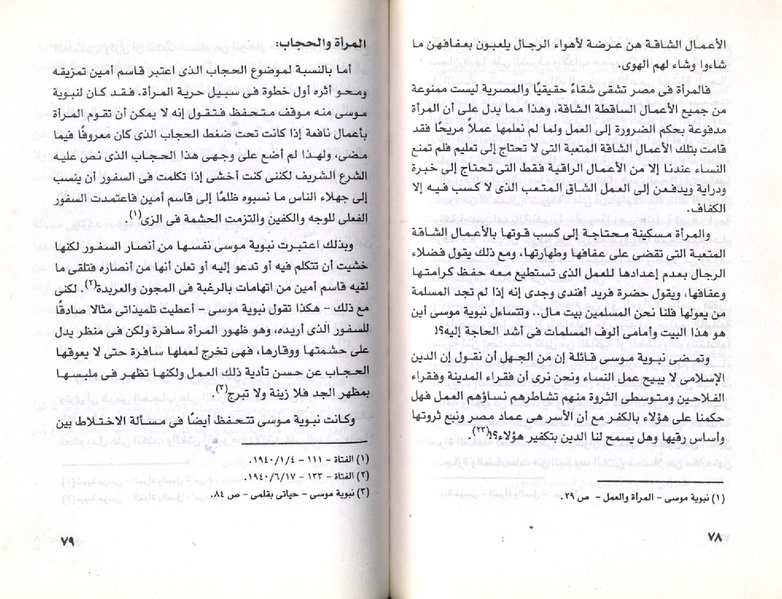 الأعمال الشاقة هن عرضة لأهواء الرجال يلعبون بعفافهن ما
شاءوا وشاء لهم الهوى.
فالمرأة فى مصر تشقى شقاءً حقيقيًا والمصرية ليست ممنوعة
من جميع الأعمال الساقطة الشاقة، وهذا مما يدل على أن المرأة
مدفوعة بحكم الضرورة إلى العمل ولما لم نعلمها عملاً مريحًا فقد
قامت بتلك الأعمال الشاقة المتعبة التى لا تحتاج إلى تعليم فلم تمنع
النساء عندنا إلا من الأعمال الراقية فقط التى تحتاج إلى خبرة
ودراية ويدفعن إلى العمل الشاق المتعب الذى لا كسب فيه إلا
الكفاف.
والمرأة مسكينة محتاجة إلى كسب قوتها بالأعمال الشاقة
المتعبة التى تقضى على عفافها وطهارتها، ومع ذلك يقول فضلاء
الرجال بعدم إعدادها للعمل الذى تستطيع معه حفظ كرامتها
وعفافها، ويقول حضرة فريد أفندى وجدى إنه إذا لم تجد المسلمة
من يعولها فلنا نحن المسلمين بيت مال.. وتتساءل نبوية موسى أين
هو هذا البيت وأمامى ألوف المسلمات فى أشد الحاجة إليه؟!
وتمضى نبوية موسى قائلة إن من الجهل أن نقول إن الدين
الإسلامى لا يبيح عمل النساء ونحن نرى أن فقراء المدينة وفقراء
الفلاحين ومتوسطى الثروة منهم تشاطرهم نساؤهم العمل فهل
حكمنا على هؤلاء بالكفر مع أن الأسر هى عماد مصر ونبع ثروتها
وأساس رقيها وهل يسمح لنا الدين بتكفير هؤلاء؟!(٢٣).
(١) نبوية موسى - المرأة والعمل - ص ٢٩.
٧٨
المرأة والحجاب:
أما بالنسبة لموضوع الحجاب الذى اعتبر قاسم أمين تمزيقه
ومحو أثره أول خطوة فى سبيل حرية المرأة. فقد كان لنبوية
موسى منه موقف متحفظ فتقول إنه لا يمكن أن تقوم المرأة
بأعمال نافعة إذا كانت تحت ضغط الحجاب الذى كان معروفًا فيما
مضى، ولهذا لم أضع على وجهى هذا الحجاب الذى نص عليه
الشرع الشريف لكننى كنت أخشى إذا تكلمت فى السفور أن ينسب
إلى جهلاء الناس ما نسبوه ظلمًا إلى قاسم أمين فاعتمدت السفور
الفعلى للوجه والكفين والتزمت الحشمة فى الزى(١).
وبذلك اعتبرت نبوية موسى نفسها من أنصار السفور لكنها
خشيت أن تتكلم فيه أو تدعو إليه أو تعلن أنها من أنصاره فتلقى ما
لقيه قاسم أمين من اتهامات بالرغبة فى المجون والعربدة(٢). لكنى
مع ذلك - هكذا تقول نبوية موسى - أعطيت تلميذاتى مثالا صادقًا
للسفور الذى أريده، وهو ظهور المرأة سافرة ولكن فى منظر يدل
على حشمتها ووقارها، فهى تخرج لعملها سافرة حتى لا يعوقها
الحجاب عن حسن تأدية ذلك العمل ولكنها تظهر فى ملبسها
بمظهر الجد فلا زينة ولا تبرج(٣).
وكانت نبوية موسى تتحفظ أيضًا فى مسألة الاختلاط بين
(١) الفتاة - ١١١ - ١٩٤٠/١/٤.
(٢) الفتاة - ١٣٣ - ١٩٤٠/٦/١٧.
(٣) نبوية موسى - حياتى بقلمى - ص ٨٤.
٧٩